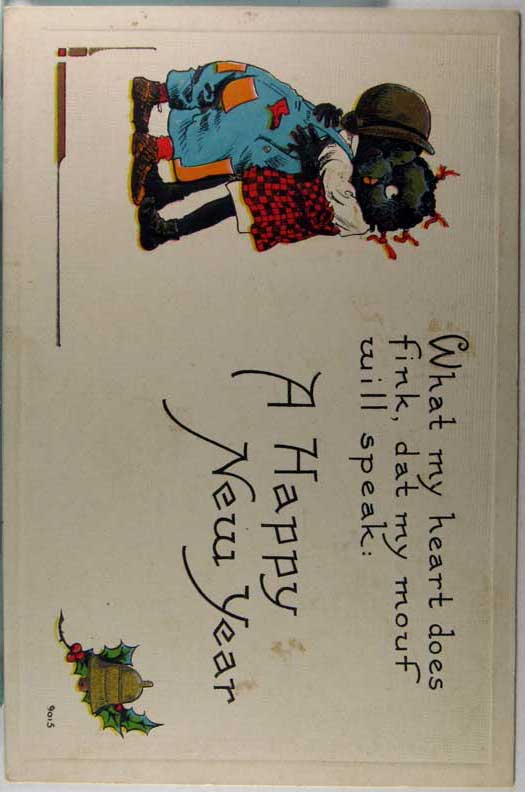 What my heart does
fink, dat my mouf
will speak:
A Happy
New Year
9015